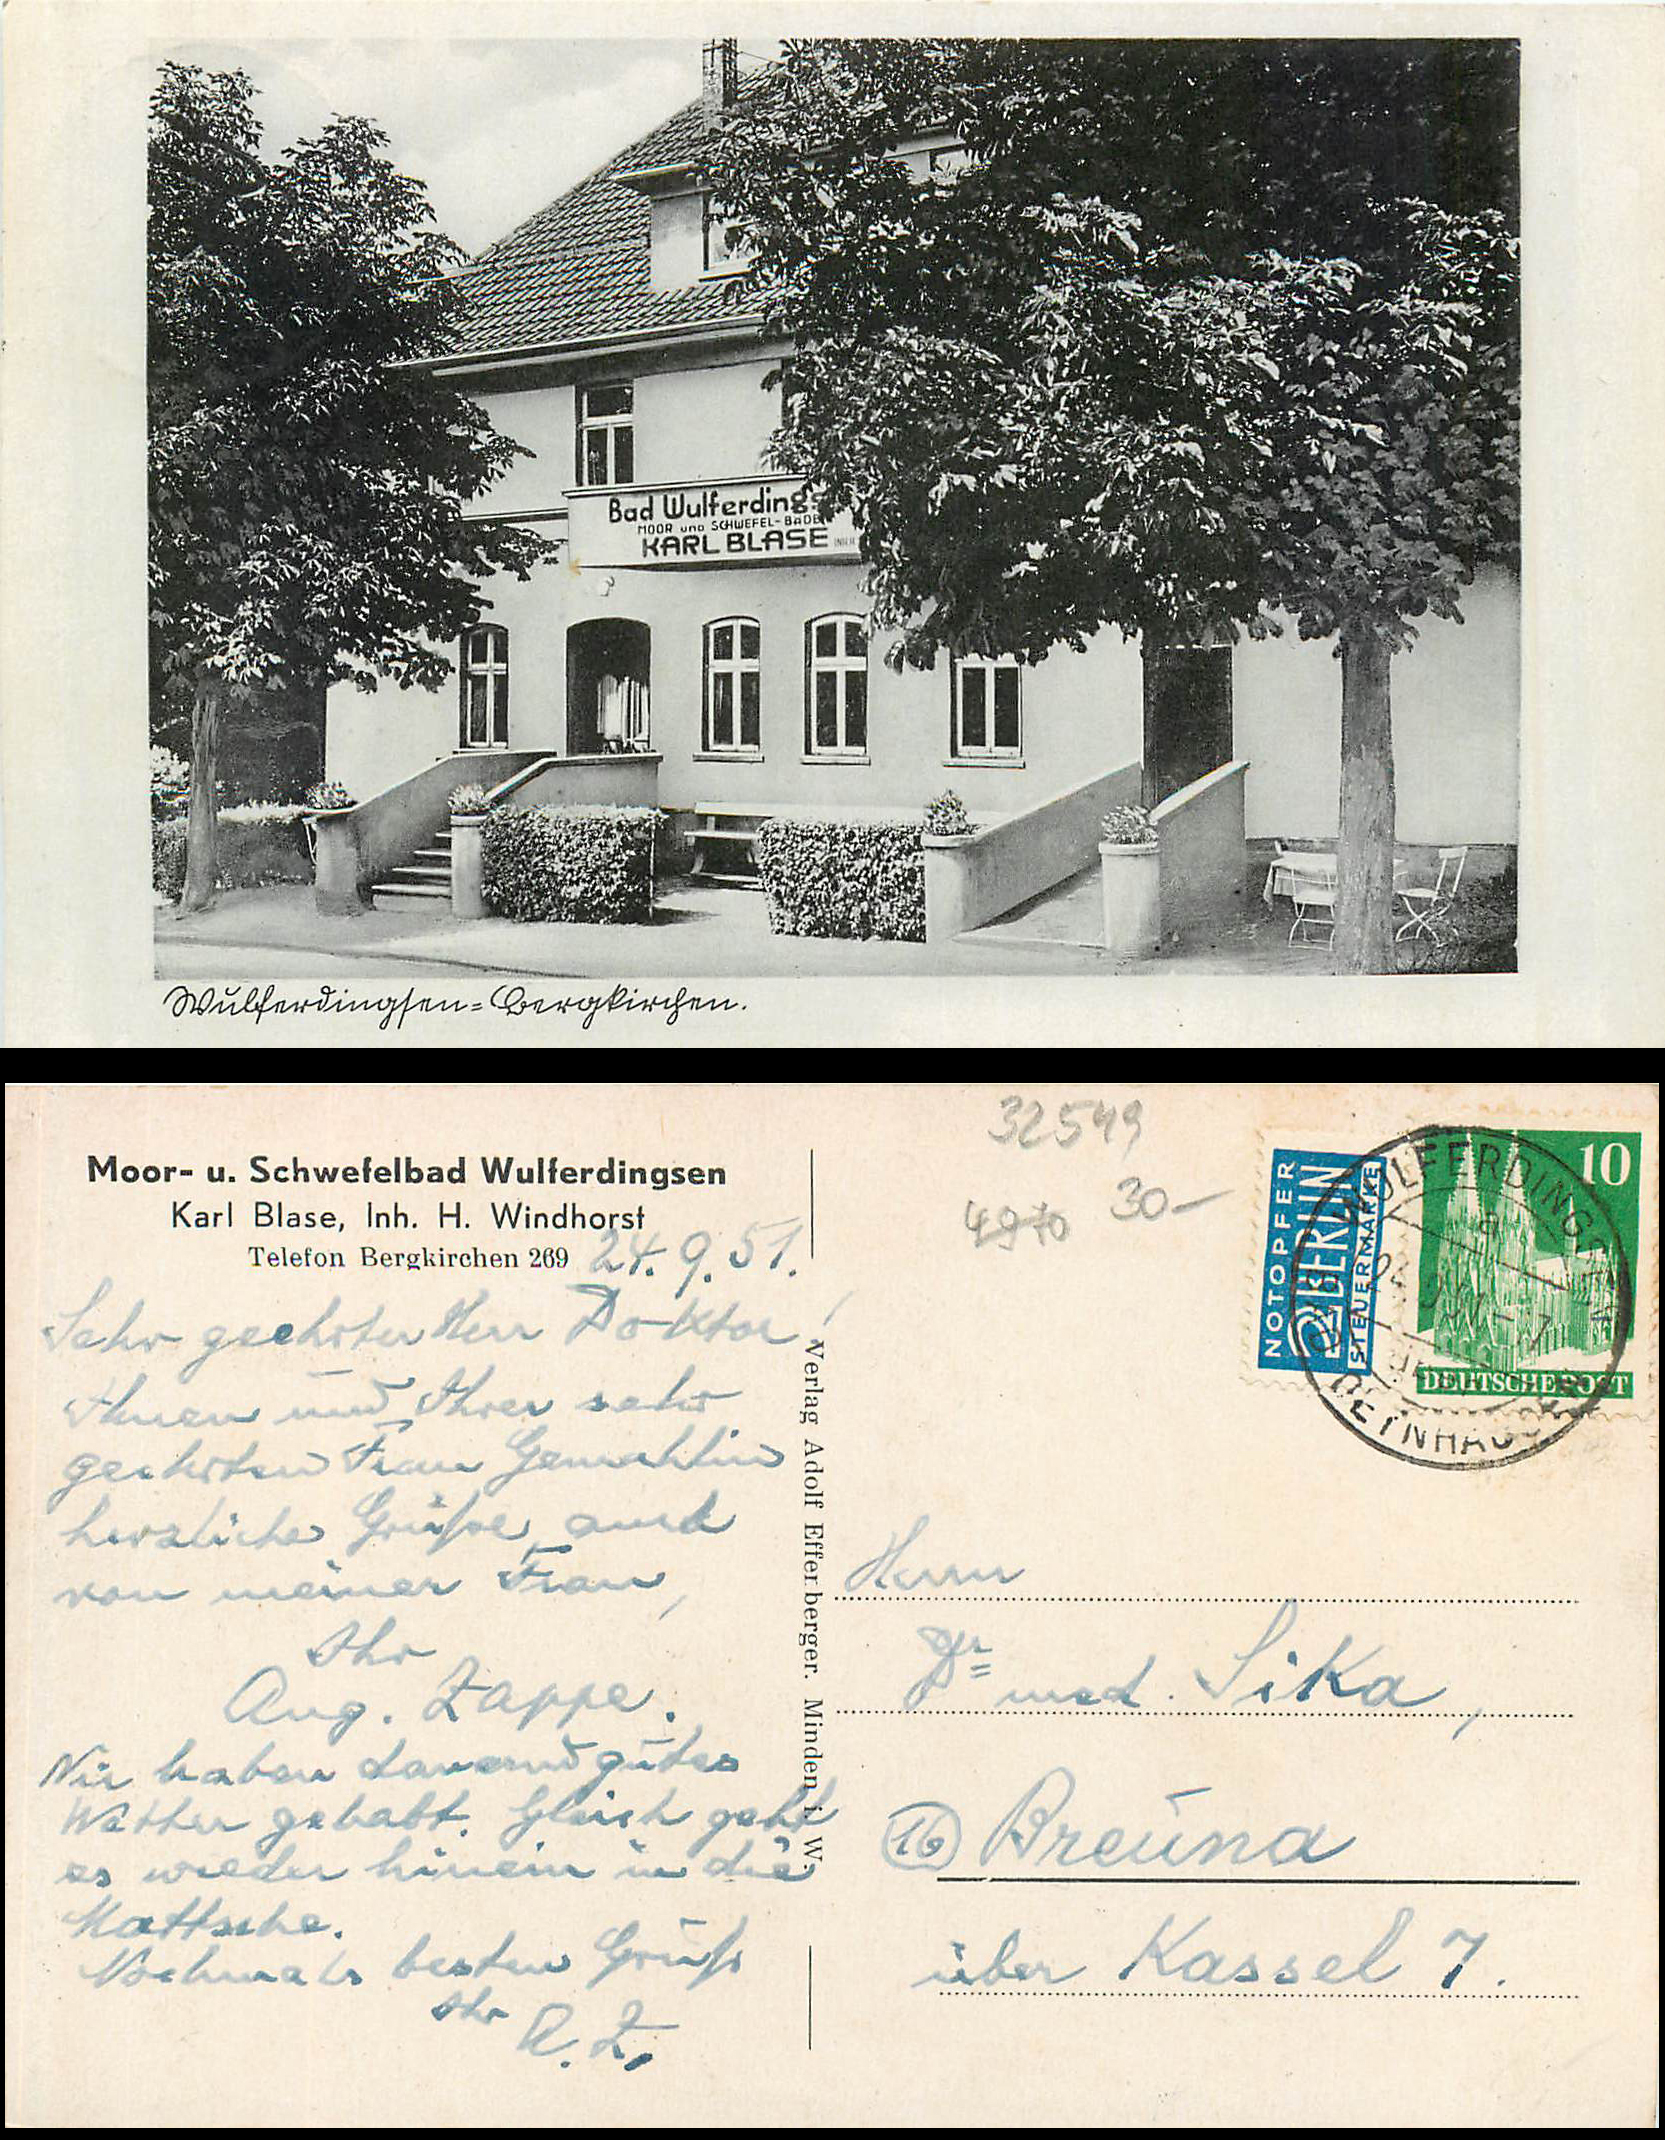 Bad Wulferdings
MOOR und SCHWEFEL-BÄDER
KARL BLASE
Wulferdingsen=Bergkirchen.
Moor- u. Schwefelbad Wulferdingsen
Karl Blase, Inh. H. Windhorst
Telefon Bergkirchen 269
24. 9. 51.
Sehr geehrter Herr Doktor!
Ihnen und Ihrer sehr
geehrten Frau Gemahlin
herzliche Grüße auch
von meiner Frau,
Ihr
Aug. Zappe.
Wir haben dauernd gutes
Wetter gehabt. Gleich geht
es wieder hinein in die
Mattsche.
Nochmals besten Gruß
Ihr
A. Z.
Verlag Adolf Effenberger. Minden i. W.
32549
4970
30-
NOTOPFER
2 BERLIN
STEUERMARKE
10
DEUTSCHE POST
WULFERDINGSEN
a
24. 9. 51 - 7
OEYNHAUSEN
Herrn
Dr med. Sika,
(16) Breuna
über Kassel 7.